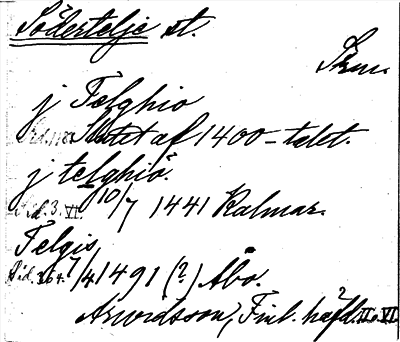 Södertelje st.
Skm.
j Telghio
Slutet af 1400-talet.
j telghiø.
Sid. 3. VI. 10/7 1441 Kalmar.
Telgis
Sid. 364. 7/4 1491 (?) Åbo.
Arwidsson, Finl. häfd. II o. VI